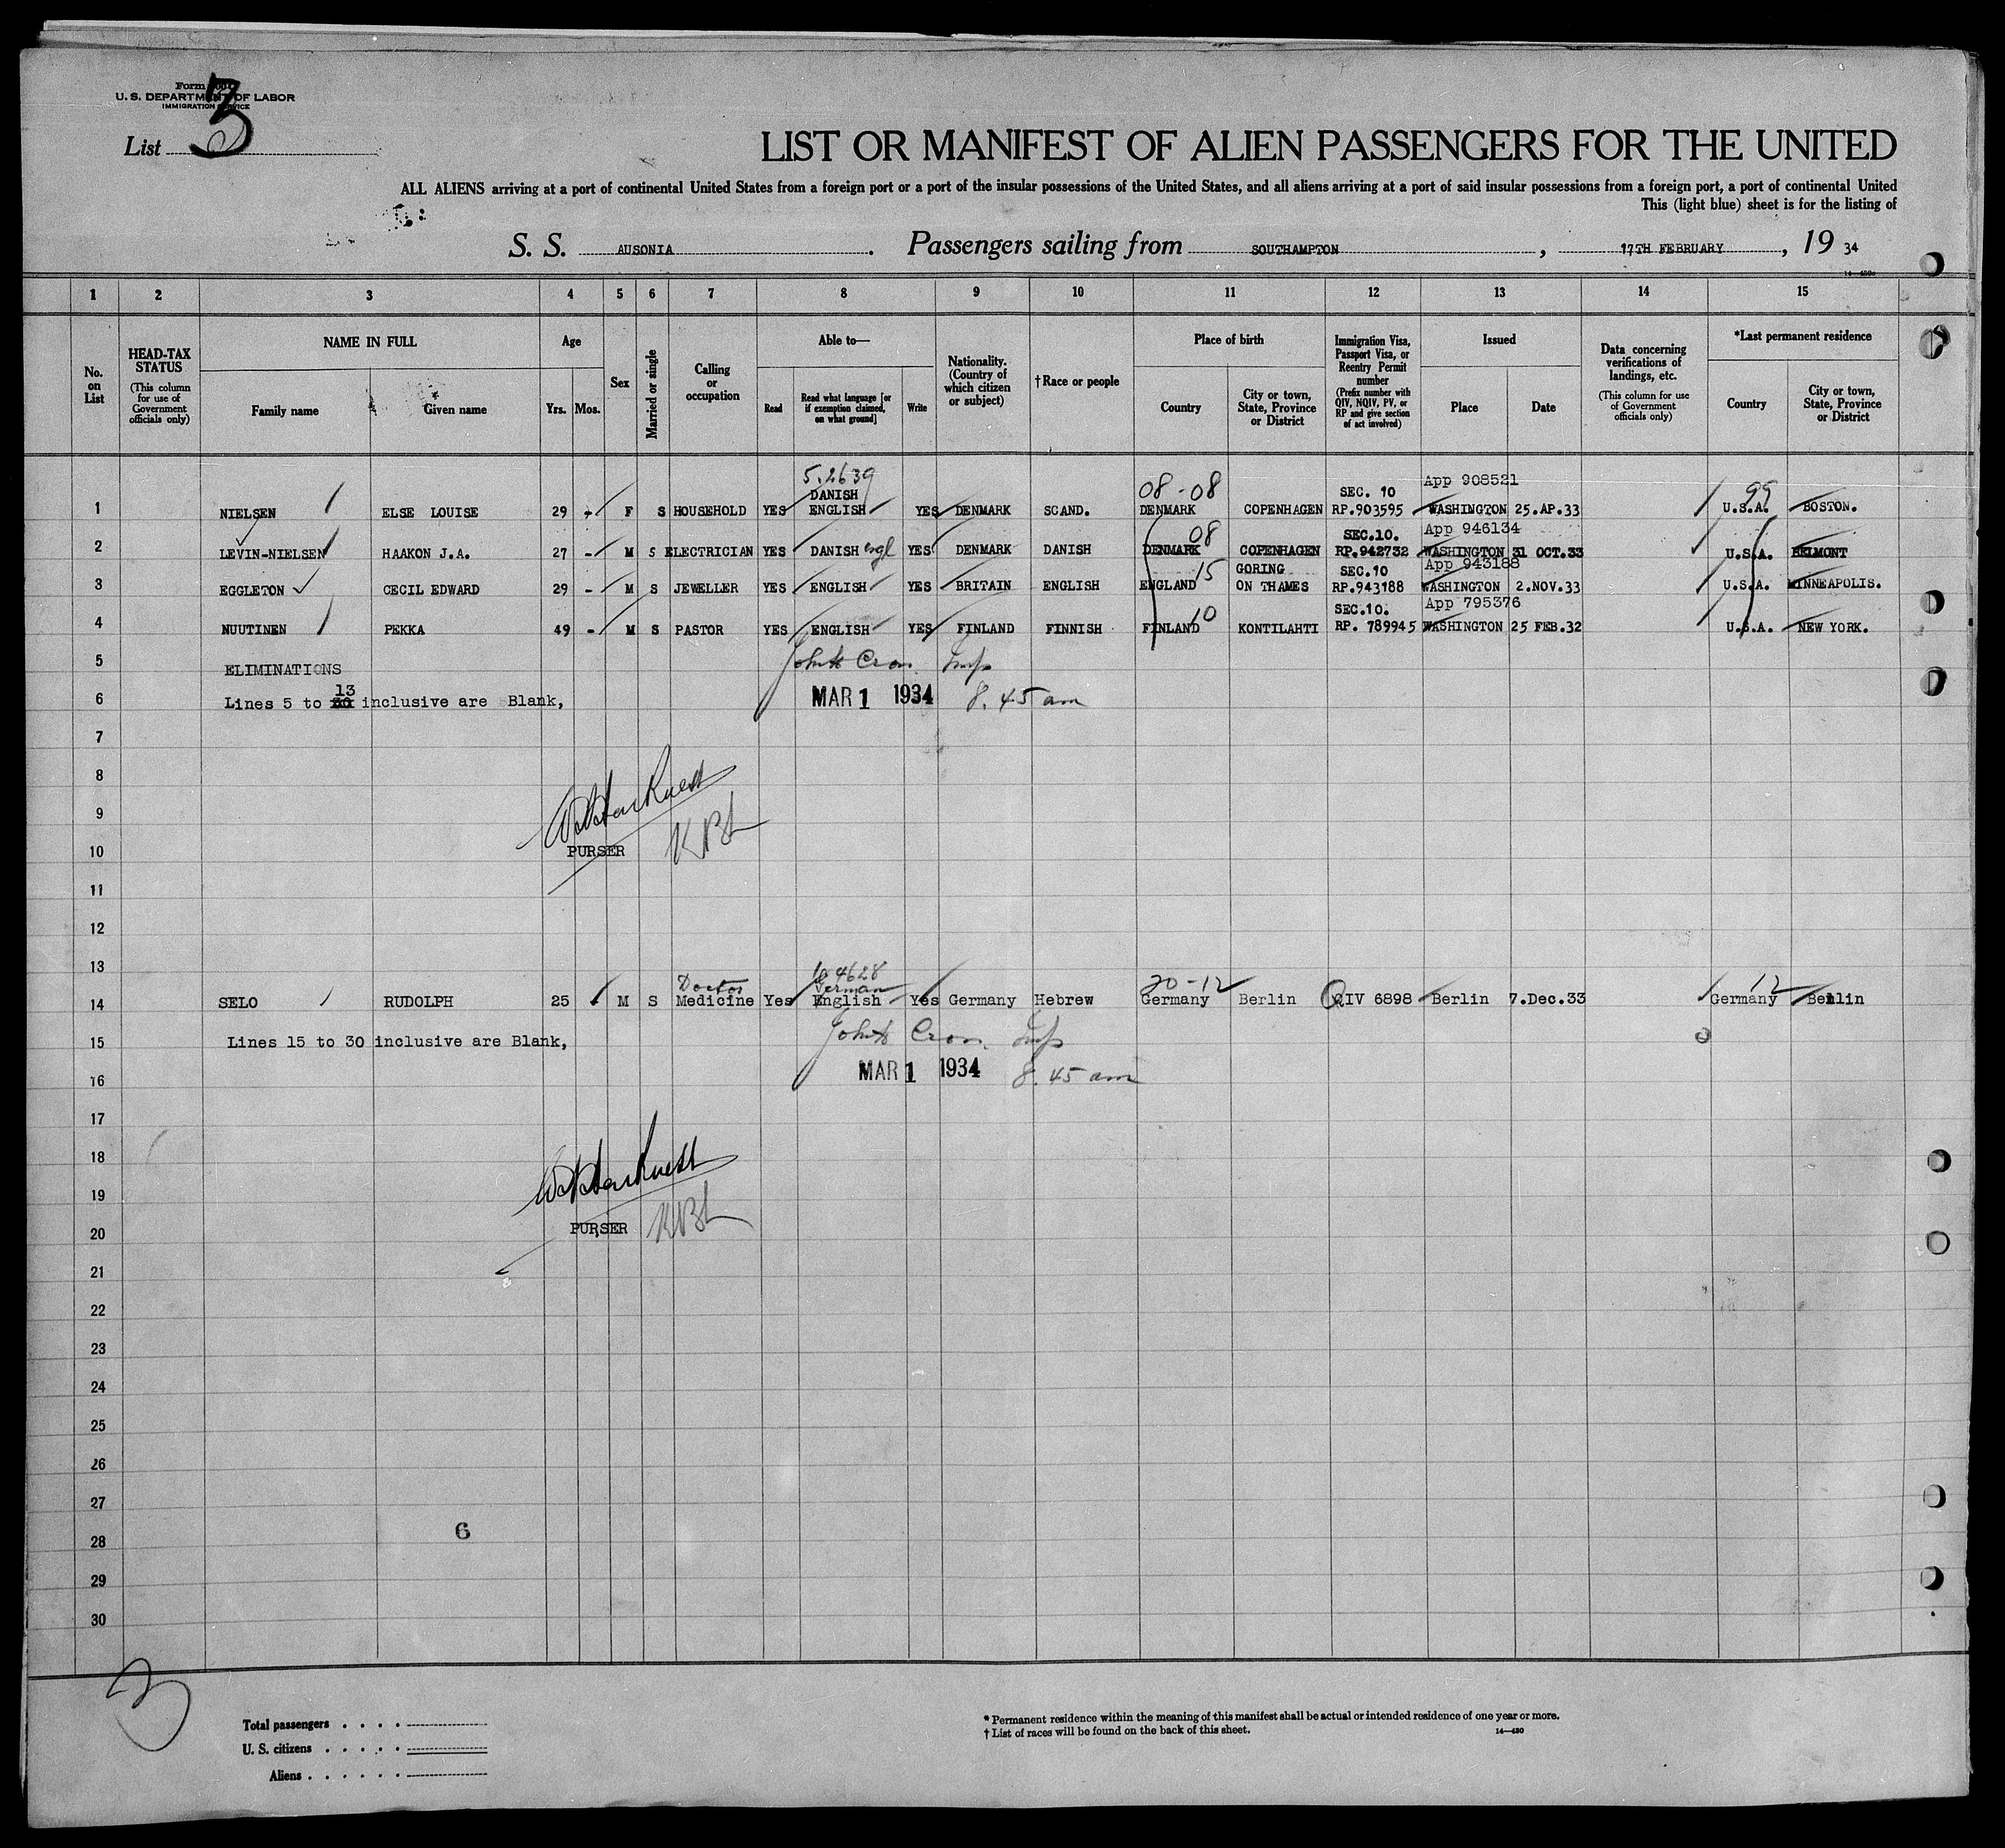 Form 500
U. S. DEPARTMENT OF LABOR
IMMIGRATION SERVICE
List 3
LIST OR MANIFEST OF ALIEN PASSENGERS FOR THE UNITED
ALL ALIENS arriving at a port of continental United States from a foreign port or a port of the insular possessions of the United States, and all aliens arriving at a port of said insular possessions from a foreign port, a port of continental United
This (light blue) sheet is for the listing of
S. S. AUSONIA. Passengers sailing from SOUTHAMPTON, 17TH FEBRUARY, 19 34
1 2 3 4 5 6 7 8 9 10 11 12 13 14 15
No. on List
HEAD-TAX STATUS
(This column for use of Government officials only)
NAME IN FULL
Family name
Given name
Age
Yrs. Mos.
Sex
Married or single
Calling or occupation
Able to—
Read
Read what language [or if exemption claimed, on what ground]
Write
Nationality. (Country of which citizen or subject)
† Race or people
Place of birth
Country
City or town, State, Province or District
Immigration Visa, Passport Visa, or Reentry Permit number
(Prefix number with QIV, NQIV, PV, or RP and give section of act involved)
Issued
Place
Date
Data concerning verifications of landings, etc.
(This column for use of Government officials only)
*Last permanent residence
Country
City or town, State, Province or District
5.2639 08-08 App 908521 99
DANISH SEC. 10
1 NIELSEN ELSE LOUISE 29 - F S HOUSEHOLD YES ENGLISH YES DENMARK SCAND. DENMARK COPENHAGEN RP.903595 WASHINGTON 25.AP.33 U.S.A. BOSTON.
08 SEC.10. App 946134
2 LEVIN-NIELSEN HAAKON J.A. 27 - M S ELECTRICIAN YES DANISH engl YES DENMARK DANISH DENMARK COPENHAGEN RP.942732 WASHINGTON 31 OCT.33 U.S.A. BELMONT
15 GORING SEC.10 App 943188
3 EGGLETON CECIL EDWARD 29 - M S JEWELLER YES ENGLISH YES BRITAIN ENGLISH ENGLAND ON THAMES RP.943188 WASHINGTON 2.NOV.33 U.S.A. MINNEAPOLIS.
10 SEC.10. App 795376
4 NUUTINEN PEKKA 49 - M S PASTOR YES ENGLISH YES FINLAND FINNISH FINLAND KONTILAHTI RP. 789945 WASHINGTON 25 FEB.32 U.S.A. NEW YORK.
5 ELIMINATIONS John H Cron Insp
13
6 Lines 5 to 30 inclusive are Blank, MAR 1 1934 8.45 am
7
8
9
10 PURSER
11
12
13
Doctor German 20-12 12
14 SELO RUDOLPH 25 M S Medicine Yes English Yes Germany Hebrew Germany Berlin QIV 6898 Berlin 7.Dec.33 Germany Berlin
15 Lines 15 to 30 inclusive are Blank, John H Cron. Insp
16 MAR 1 1934 8.45 am
17
18
19
20 PURSER
21
22
23
24
25
26
27
28 6
29
30
3
Total passengers . . . .
U. S. citizens . . . . .
Aliens . . . . . .
* Permanent residence within the meaning of this manifest shall be actual or intended residence of one year or more.
† List of races will be found on the back of this sheet. 14—430